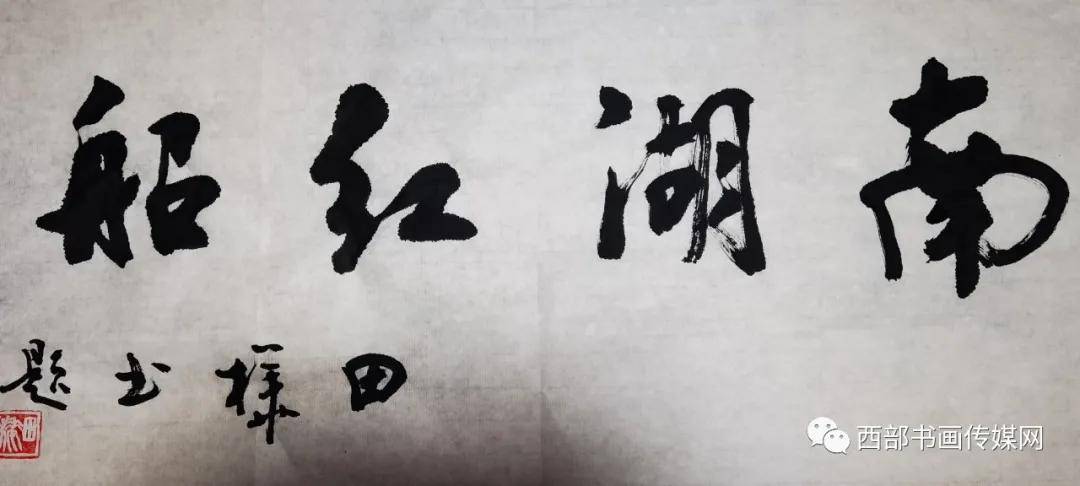 南湖红船
田书题
西部书画传媒网